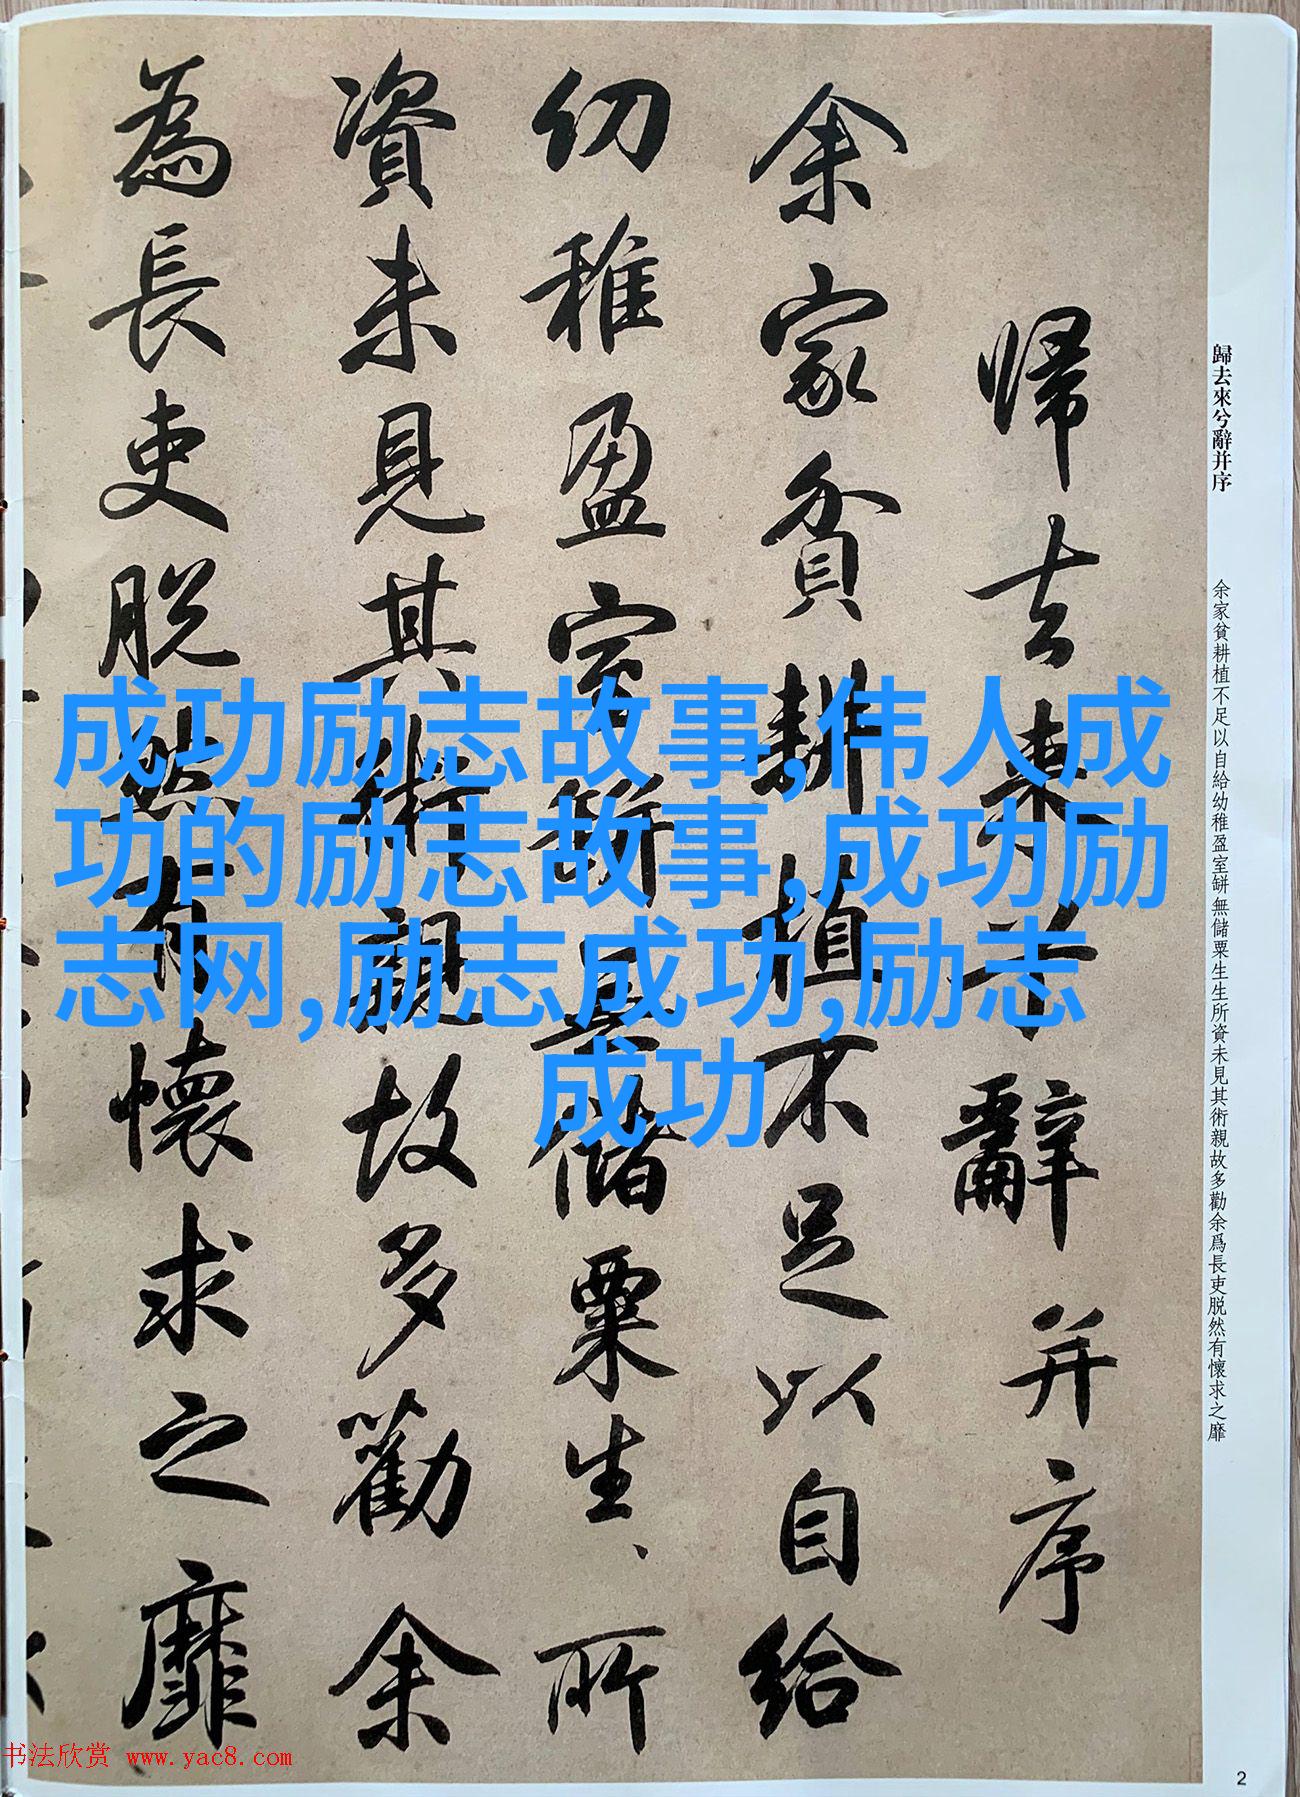 歸去來兮辭并序
余家貧耕植不足以自給
幼稚盈室缾無儲粟生〻所
資未見其術親故多勸余
為長吏脫然有懷求之靡
歸去來兮辭并序
余家貧耕植不足以自給幼稚盈室缾無儲粟生生所資未見其術親故多勸余爲長吏脱然有懷求之靡
成功励志故事,伟人成
功的励志故事,成功励
志网,励志成功,励志
成功
书法欣赏 www.yac8.com
2